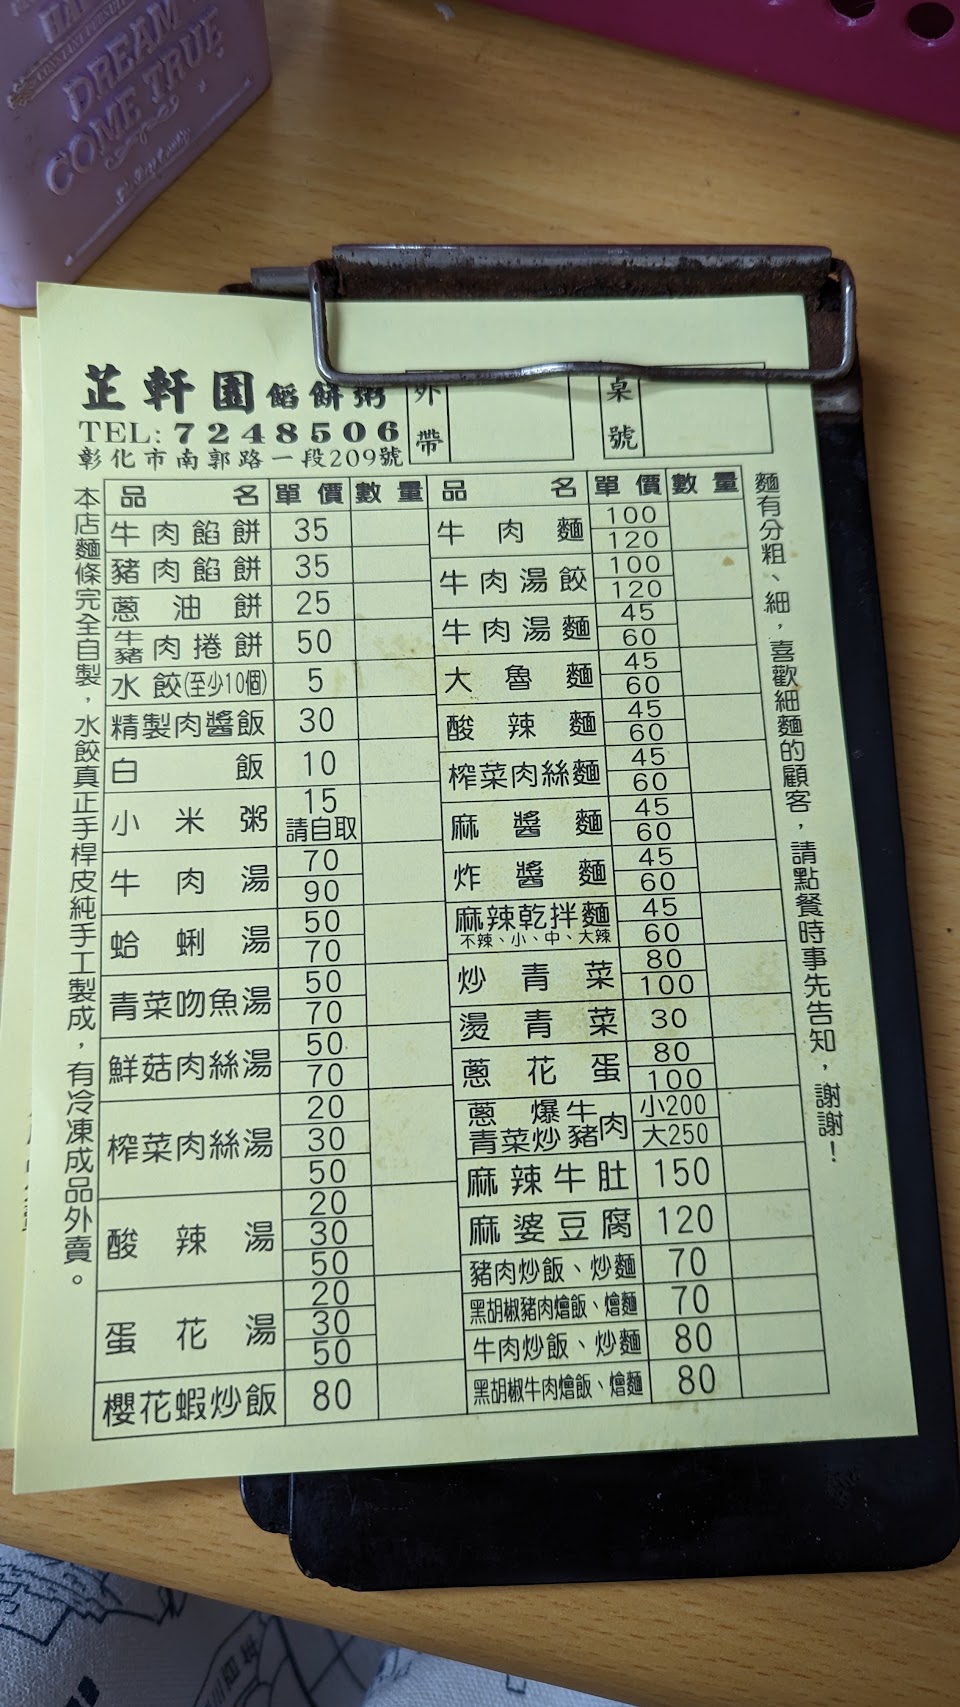 DREAM
COME TRUE
芷軒園餡餅粥
TEL: 7248506
彰化市南郭路一段209號
外帶
桌號
本店麵條完全自製，水餃真正手桿皮純手工製成，有冷凍成品外賣。
品名 單價 數量
牛肉餡餅 35
豬肉餡餅 35
蔥油餅 25
牛豬肉捲餅 50
水餃(至少10個) 5
精製肉醬飯 30
白飯 10
小米粥 15 請自取
牛肉湯 70 90
蛤蜊湯 50 70
青菜吻魚湯 50 70
鮮菇肉絲湯 50 70
榨菜肉絲湯 20 30 50
酸辣湯 20 30 50
蛋花湯 20 30 50
櫻花蝦炒飯 80
品名 單價 數量
牛肉麵 100 120
牛肉湯餃 100 120
牛肉湯麵 45 60
大魯麵 45 60
酸辣麵 45 60
榨菜肉絲麵 45 60
麻醬麵 45 60
炸醬麵 45 60
麻辣乾拌麵 45 60
不辣、小、中、大辣
炒青菜 80 100
燙青菜 30
蔥花蛋 80 100
蔥爆牛肉 小200
青菜炒豬肉 大250
麻辣牛肚 150
麻婆豆腐 120
豬肉炒飯、炒麵 70
黑胡椒豬肉燴飯、燴麵 70
牛肉炒飯、炒麵 80
黑胡椒牛肉燴飯、燴麵 80
麵有分粗、細，喜歡細麵的顧客，請點餐時事先告知，謝謝！